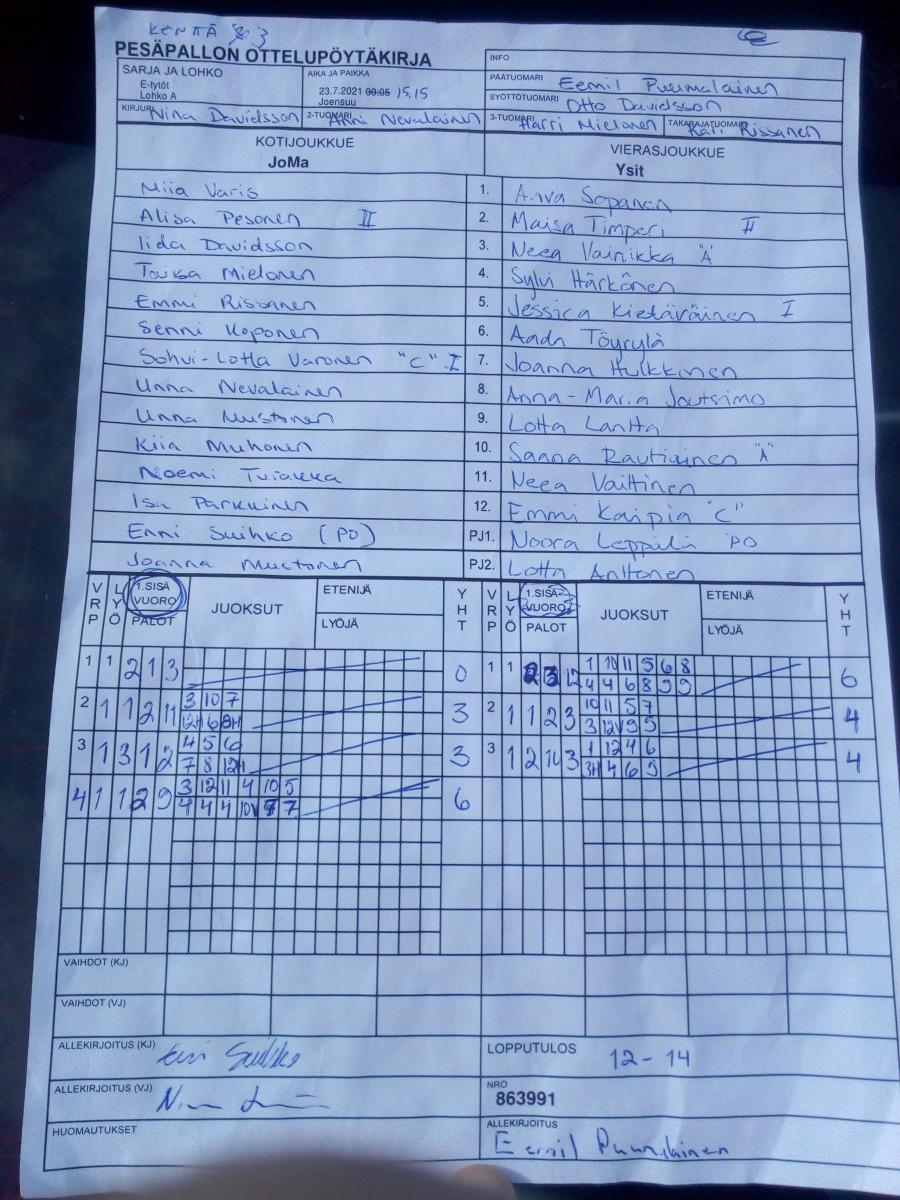 KENTTÄ 3
PESÄPALLON OTTELUPÖYTÄKIRJA
SARJA JA LOHKO
E-tytöt
Lohko A
AIKA JA PAIKKA
23.7.2021 00:05 15.15
Joensuu
INFO
PÄÄTUOMARI Eemil Puumalainen
SYÖTTÖTUOMARI Otto Davidsson
KIRJURI Nina Davidsson
2-TUOMARI Anni Nevalainen
3-TUOMARI Harri Mielonen
TAKARAJATUOMARI Kati Rissanen
KOTIJOUKKUE
JoMa
VIERASJOUKKUE
Ysit
Miia Varis 1. Anva Sopanen
Alisa Pesonen II 2. Maisa Timperi II
Iida Davidsson 3. Neea Vainikka "Ä"
Taika Mielonen 4. Sylvi Härkönen
Emmi Rissanen 5. Jessica Kietäväinen I
Senni Koponen 6. Aada Töyrylä
Sohvi-Lotta Varonen "C" I 7. Joanna Hulkkonen
Unna Nevalainen 8. Anna-Maria Joutsimo
Unna Mustonen 9. Lotta Lantta
Kiia Muhonen 10. Saana Rautiainen "Ä"
Noemi 11. Neea Vaittinen
Isa Parkkinen 12. Emmi Kaipia "C"
Enni Suihko (PO) PJ1. Noora Leppälä PO
Joanna Mustonen PJ2. Lotta Anttonen
VRP LYÖ 1.SISÄ VUORO PALOT JUOKSUT ETENIJÄ LYÖJÄ YHT
VRP LYÖ 1.SISÄ VUORO PALOT JUOKSUT ETENIJÄ LYÖJÄ YHT
1 1 2 1 3 0
1 1 2 3 12 1 10 11 5 6 8 6
4 4 6 8 9 9
2 1 1 2 11 3 10 7 3
12H 6 8H
2 1 1 2 3 10 11 5 7 4
3 12V 9 9
3 1 3 1 2 4 5 6 3
7 8 12H
3 1 2 10 3 1 12 4 6 4
3H 4 6 9
4 1 1 2 9 3 12 11 4 10 5 6
4 4 4 10V 7
VAIHDOT (KJ)
VAIHDOT (VJ)
ALLEKIRJOITUS (KJ)
LOPPUTULOS 12-14
ALLEKIRJOITUS (VJ)
NRO
863991
HUOMAUTUKSET
ALLEKIRJOITUS
Eemil Puumalainen